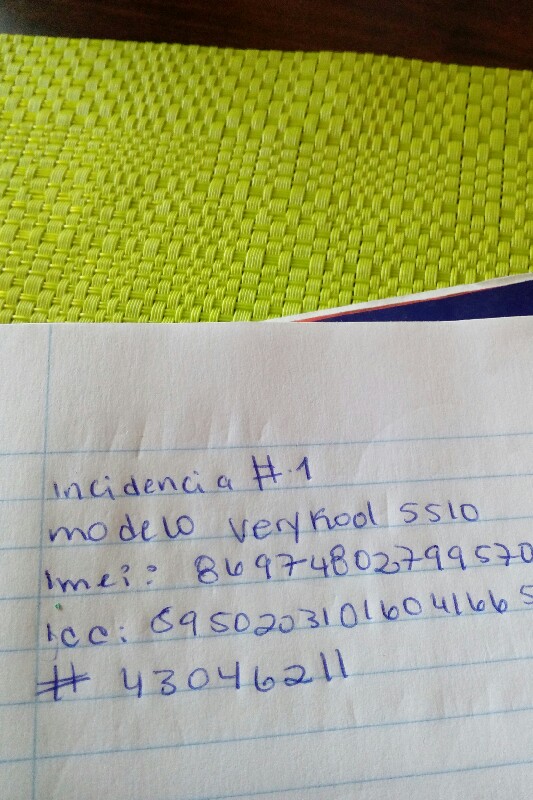 incidencia #.1
modelo verykool s510
imei: 86974802799570
icc: 8950203101604166 5
# 43046211